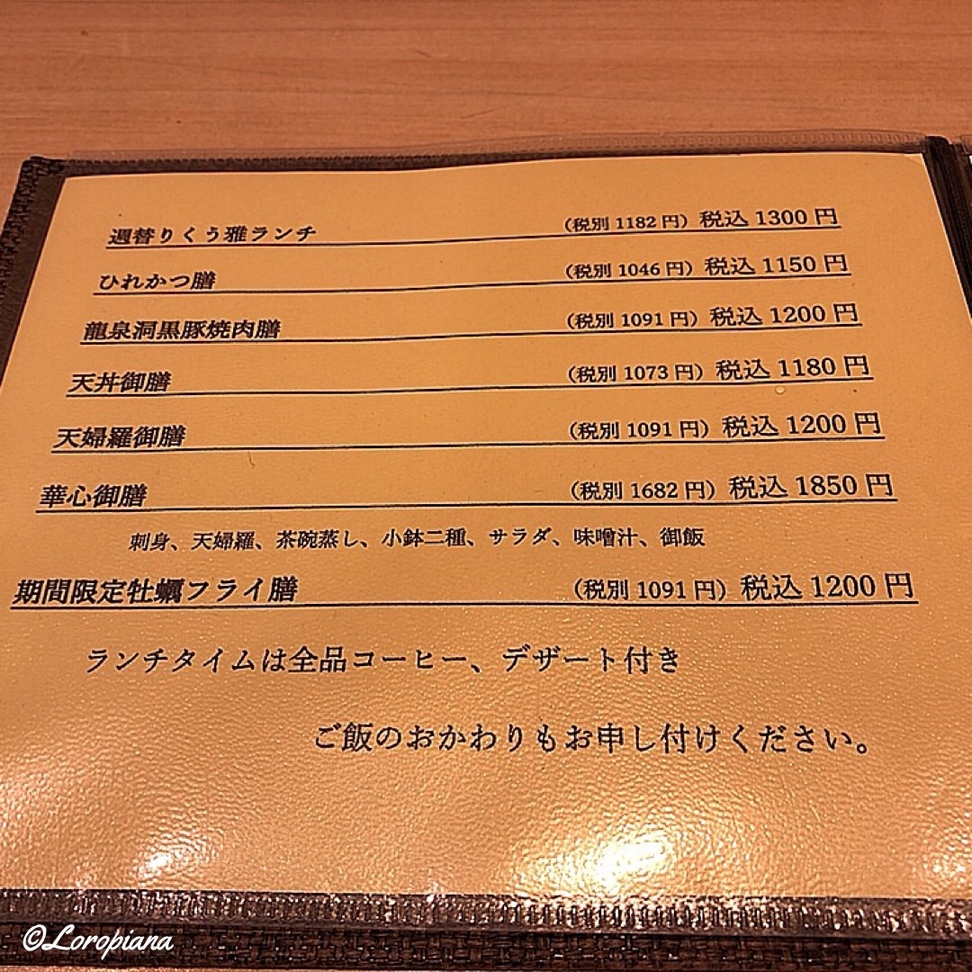 週替りくう雅ランチ （税別 1182 円） 税込 1300 円
ひれかつ膳 （税別 1046 円） 税込 1150 円
龍泉洞黒豚焼肉膳 （税別 1091 円） 税込 1200 円
天丼御膳 （税別 1073 円） 税込 1180 円
天婦羅御膳 （税別 1091 円） 税込 1200 円
華心御膳 （税別 1682 円） 税込 1850 円
刺身、天婦羅、茶碗蒸し、小鉢二種、サラダ、味噌汁、御飯
期間限定牡蠣フライ膳 （税別 1091 円） 税込 1200 円
ランチタイムは全品コーヒー、デザート付き
ご飯のおかわりもお申し付けください。
©Loropiana